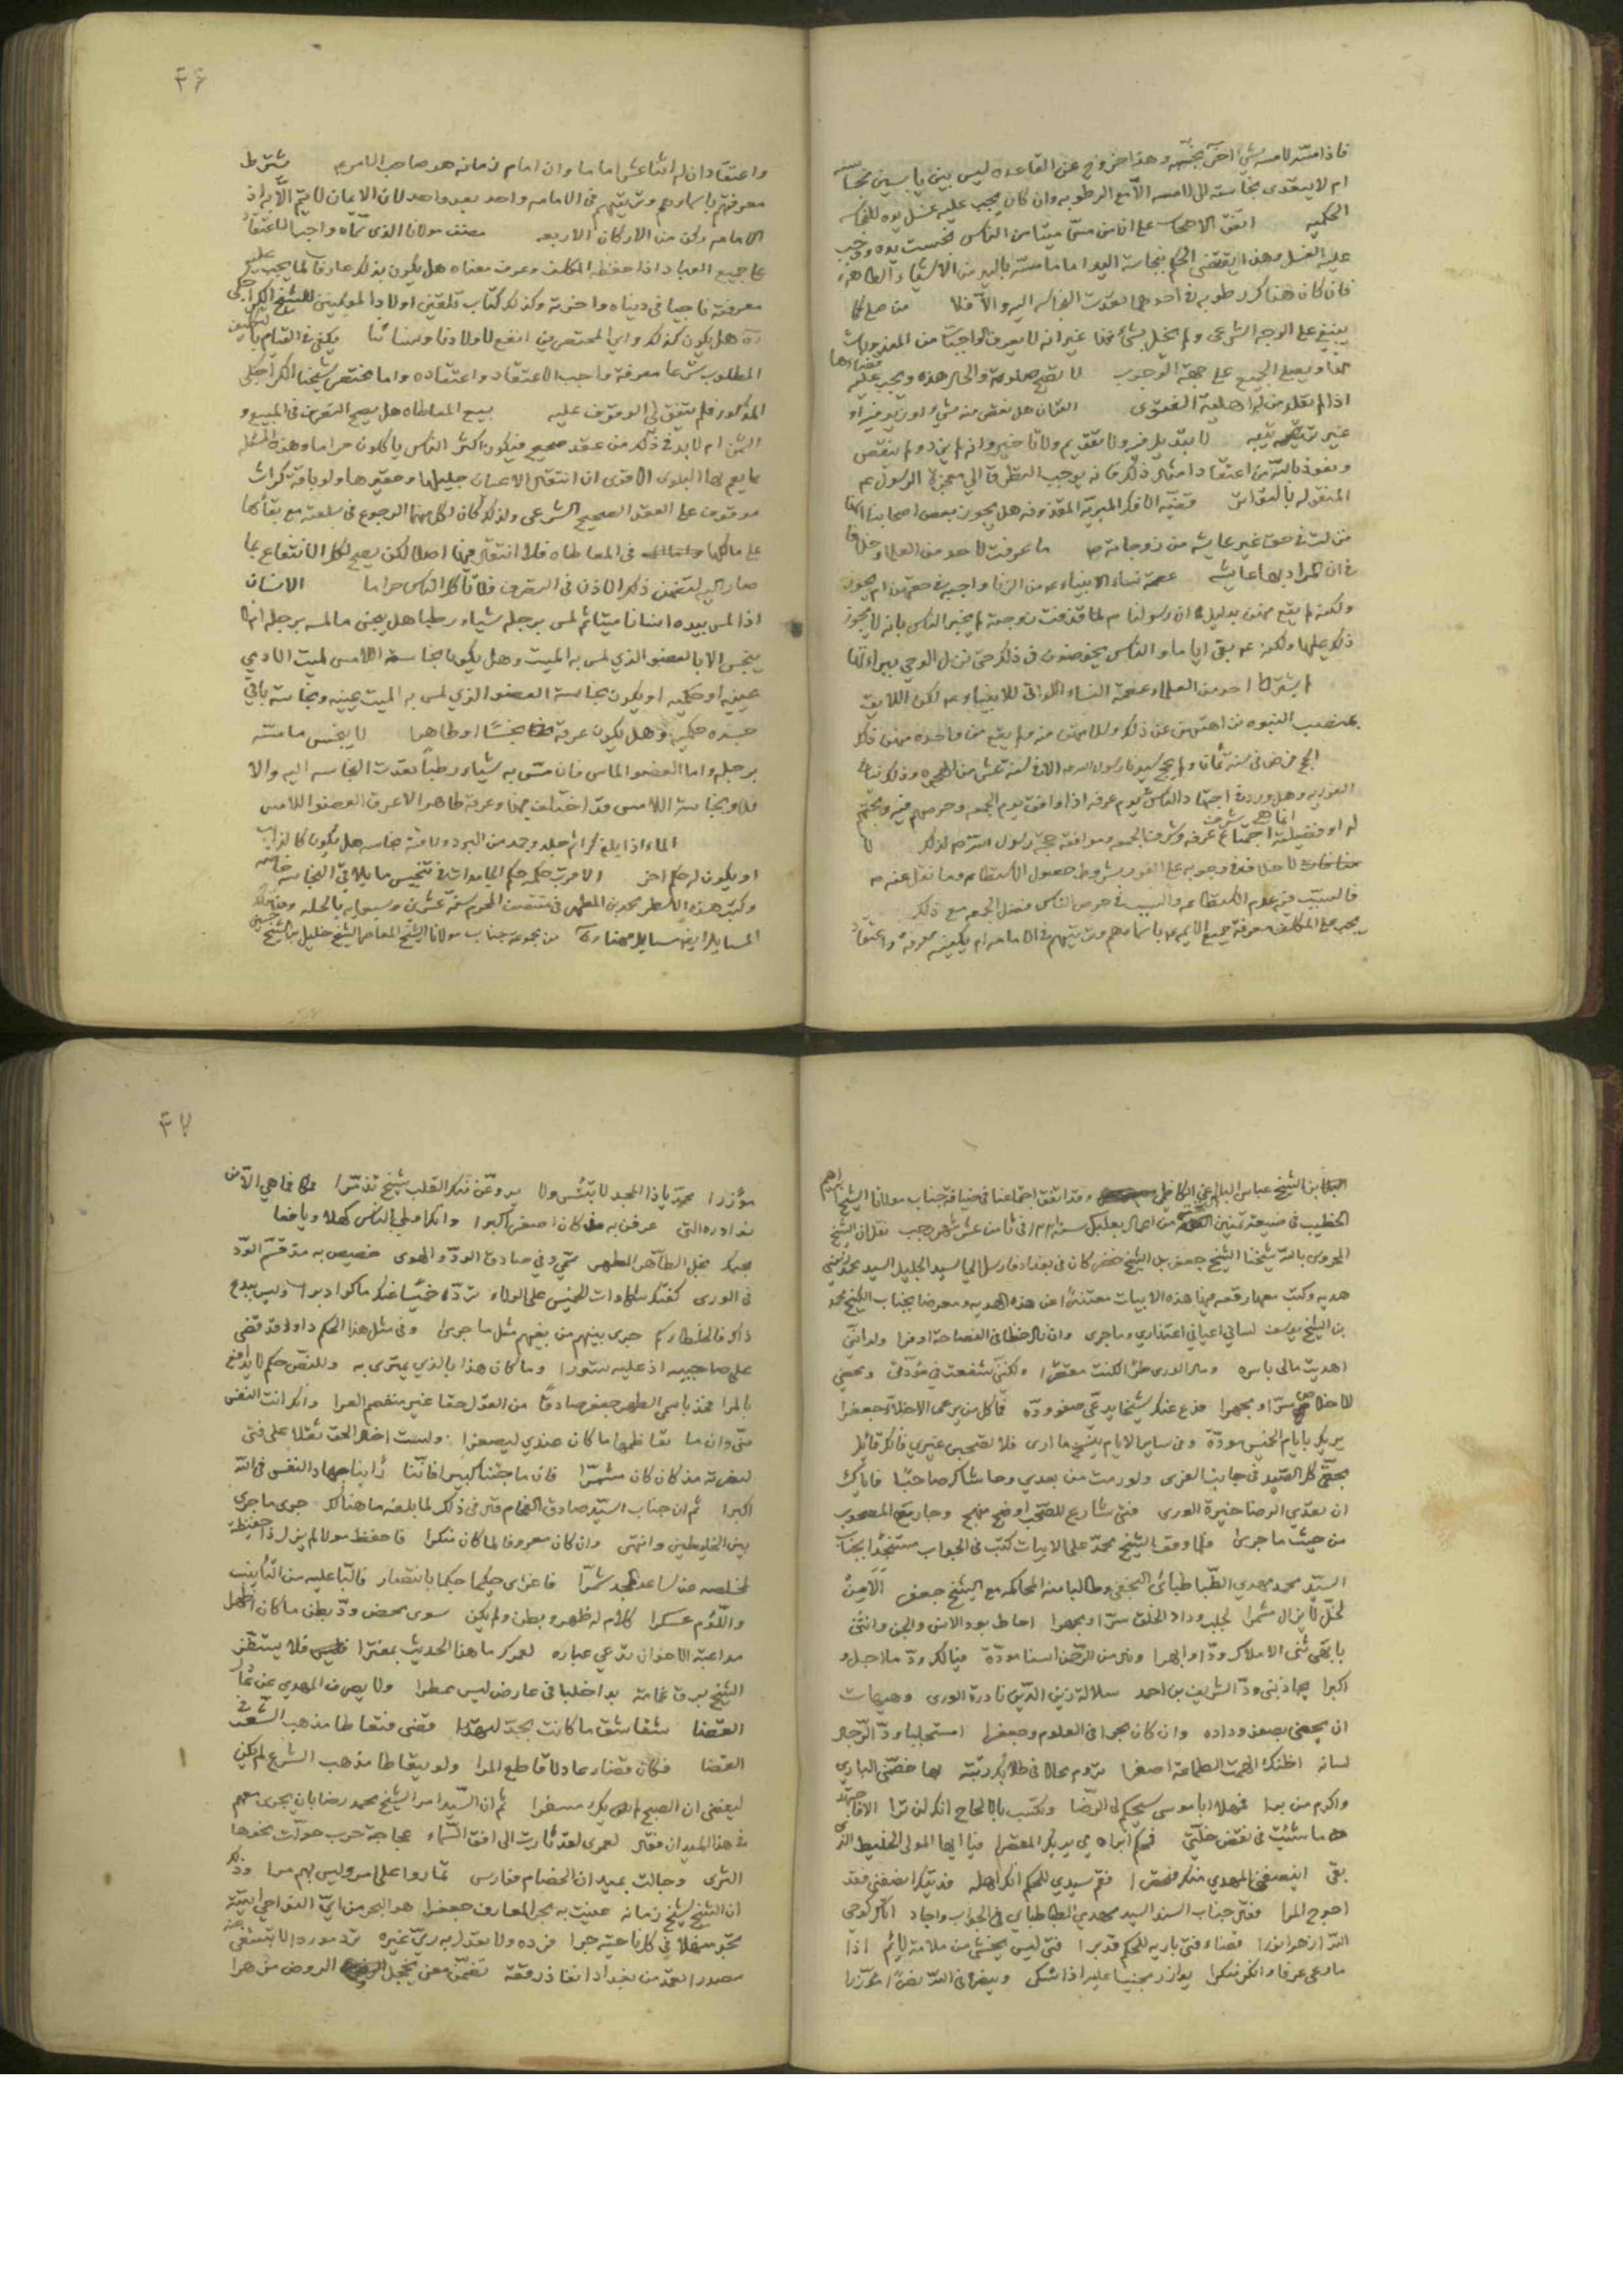 فاذا مسه لامسه بشئ اخر نجسه وهذا خروج عن القاعده ليس بين يابسين نجاسه
ام لا يتعدى نجاسته الى لامسه الا مع الرطوبه وان كان يجب عليه غسل يده للنجاسه
الحكميه اتفق الاصحاب على ان من مس ميتا من الناس نجست يده ووجب
عليه الغسل وهذا يقتضي الحكم بنجاسة اليد اما ما مسته باليد من الاشياء الطاهره
فان كان هناك رطوبه في احدهما تعدت النجاسه اليه والا فلا من صلى كما
ينبغي على الوجه الشرعي ولم يخل بشئ منها غير انه لا يعرف الواجبات من المندوبات
بل ويصلى الجميع على جهة الوجوب لا تصح صلوته والحال هذه ويجب عليه قضاءها
اذا لم يقلد من له اهلية الفتوى القران هل نقص منه شئ او زيد فيه او
غير ترتيبه لا تبديل فيه ولا تقديم ولا تاخير وانه لم يزد ولم ينقص
ونعوذ بالله من اعتقاد امثال ذلك فانه يوجب التطرق الى معجزة الرسول عم
المنقوله بالتواتر قضيه الافك المبريه المقذوفه هل يجوز بعض اصحابنا انها
نزلت في حق غير عايشه من زوجاته ص ما عرفت لاحد من العلماء خلافا
في ان المراد بها عايشه عصمة نساء الانبياء عم من الزنا واجبه في حقهن ام يجوز
ولكنه لم يقع منهن بدليل ان رسولنا ص لما قذفت زوجته لم يخبر الناس بانه لا يجوز
ذلك عليها ولكنه عم بقي اياما والناس يخوضون في ذلك حتى نزل الوحي ببراءتها
لم يشترط احد من العلماء عصمة النساء اللواتي للانبياء عم لكن اللايق
بمنصب النبوه نزاهتهن عن ذلك وسلامتهن منه ولم يقع من واحده منهن ذلك
الحج فرض في سنة ثمان ولم يحج سيدنا رسول الله ص الا في سنة عشر من الهجره وذلك ينافي
الفوريه وهل ورد في اجتهاد الناس يوم عرفه اذا وافق يوم الجمعه وحرصهم فيه وحجتهم
له او فضيلة اجتماع عرفه وشرفها بالجمعه وموافقة حجة رسول الله ص لذلك لا
خلاف في وجوبه على الفور بشروط حصول الاستطاعه وما نقل عنه ص
فالسبب فيه عدم الاستطاعه والسبب في حرص الناس فضل الجمعه مع ذلك
يجب على المكلف معرفة جميع الايمه باسماءهم وترتيبهم في الامامه ام يكفيه معرفة واعتقاد
٣۶
واعتقاد ان له اثنا عشر اماما وان امام زمانه هو صاحب الامر عم شرط
معرفتهم باسماءهم وترتيبهم في الامامه واحد بعد واحد لان الايمان لا يتم الا به اذ
الامامه ركن من الاركان الاربعه مصنف مولانا الذي سماه واجب الاعتقاد
على جميع العباد اذا حفظه المكلف وعرف معناه هل يكون بذلك عارفا لما يجب عليه
معرفته ناجيا في دنياه واخرته وكذلك كتاب تلقين اولاد المومنين للشيخ الكراجكي
ره هل يكون كذلك واي المختصرين انفع لاولادنا ونسائنا يكفى في القيام بالتكليف
المطلوب شرعا معرفة واجب الاعتقاد واعتقاده واما مختصر شيخنا الكراجكي
المذكور فلم يتفق لي الوقوف عليه بيع المعاطاه هل يصح التصرف في المبيع و
الثمن ام لا بد في ذلك من عقد صحيح فيكون اكثر الناس ياكلون حراما وهذه المسئله
مما يعم بها البلوى الاقوى ان انتقال الاعيان جليلها وحقيرها ولو باقة كراث
موقوف على العقد الصحيح الشرعي ولذلك كان لكل منهما الرجوع في سلعته مع بقاءها
على مالكها في المعاطاه فلا انتقال فيها اصلا لكن يصح لكل الانتفاع بما
صار اليه لتضمن ذلك الاذن في التصرف فلا تاكل الناس حراما الانسان
اذا لمس بيده انسانا ميتا ثم لمس برجله شياء رطبا هل ينجس ما لمسه برجله ام لا
ينجس الا بالعضو الذي لمس به الميت وهل يكون نجاسة اللامس لميت الادمي
عينيه او حكميه او يكون نجاسة العضو الذي لمس به الميت عينيه ونجاسة باقي
جسده حكميه وهل يكون عرقه نجسا او طاهرا لا ينجس ما مسه
برجله واما العضو الماس فان مس به شياء رطبا تعدت النجاسه اليه والا
فلا ونجاسة اللامس قد اختلف فيها وعرقه طاهر الا عرق العضو اللامس
الماء اذا بلغ كرا ثم جلد وجمد من البرد ولاقته نجاسه هل يكون كالذايب
او يكون له حكم اخر الاقرب حكمه حكم الجامدات في تنجيس ما يلاقي النجاسه خاصه
وكتب هذه الاسطر محمد بن المطهر في منتصف المحرم سنة عشرين وسبعمايه بالحله
المسايل ايضا مسايل مهناويه من مجموعة جناب مولانا الشيخ المعاصر الشيخ خليل بن الشيخ حسين
بن الشيخ عباس البلاغي الكاظمي وقد اتفق اجتماعنا في ضيافة جناب مولانا الشيخ ابراهيم
الخطيب في ضيعة تمنين من اعمال بعلبك سنة في ثامن عشر شهر رجب نقل ان الشيخ
المحروس بالله شيخنا الشيخ جعفر بن الشيخ خضر كان في بغداد فارسل الى السيد الجليل السيد محمد زيني
هديه وكتب معها رقعه فيها هذه الابيات معتذرا عن هذه الهديه ومعرضا بجناب الشيخ محمد
بن الشيخ يوسف لساني اعياني اعتذاري وما جرى وان نال حظا في الفصاحة اوفرا ولو انني
اهديت مالي باسره ومال الورى طرا لكنت مقصرا ولكنني شفعت في مودتي ومحضي
لاخلاص سرا ومجهرا فدع عنك شيخا يدعي صفو وده فما كل من يرعى الاخلاء جعفرا
يريك بايام الخميس مودة وفي ساير الايام ينسخ ما ارى فلا تصحبن غيري فانك قائل
بحقي كل الصيد في جانب الفرى ولو رمت من بعدي وحاشاك صاحبا فاياك
ان تعدي الرضا خيرة الورى فتى شارع للصحب اوضح منهج وحاز مع المصحوب
من حيث ما جرى ولما وقف الشيخ محمد على الابيات كتب في الجواب مستنجدا بجناب
السيد محمد مهدي الطباطبائي النجفي وطالبا منه المحاكمه مع الشيخ جعفر الا من
لخل لا يزال مشمرا لجلب وداد الخلق سرا ومجهرا احاط بود الانس والجن وانثنى
بابهى ثنى الاملاك ودا وابهرا ونال من الرحمن اسنا مودة فيا لك ود ما اجل و
اكبرا يجاذبني ود الشريف بن احمد سلالة زين الدين نادرة الورى وهيهات
ان يحضى بصفو وداده وان كان بحرا في العلوم وجعفرا استجلبا ود الرجال
لسانه اظنك الهمت الطماعة اصغرا تروم محالا في طلابك رتبة بها خصني الباري
واكرم من برا فمهلا ابا موسى سيحكم لي الرضا وتكسب بالالحاح انك لن ترا
ما شئت في نقض خلتي فحكم ابراهيم يريك المقصرا فيا ايها المولى الخليط الذي
بقى اينصفني المهدي منك فمعشرا فقم سيدي للحكم انك اهله فديتك انصفني فقد
احوج المرا فقال جناب السند السيد مهدي الطباطباي في الجواب واجاد اتاك كوحي
الله ازهر انورا قضاء فتى باريه للحكم قدرا فتى ليس يخشى من ملامة لائم اذا
ما رعى عرفا وانكر منكرا يوازر مجنيا عليه اذا شكى وينصر في الله نصرا مؤزرا
٣٧
مؤزرا محمد ياذا المجد لا تبتئس ولا يروعن منك القلب شيخ تذمرا فما هي الا من
نوادره التي عرفن به مذ كان اصغر اكبرا وانك اولى بالناس كهلا ويافعا
بحبك نجل الطاهر الطهر وفي صادق الود والهوى خصيص به مذ قسم الود
في الورى كفتك صلاوات الخميس على الولاء ترده خميسا عنك ما كر ادبرا وليس ببدع
ذاك فالخلطاء كم جرى بينهم من بغيهم مثل ما جرى وفي مثل هذا الحكم داود قد قضى
على صاحبيه اذ عليه تسورا وما كان هذا بالذي يمترى به وللنص حكم لا يدافع
بالمرا فخذ باسمي الطهر جعفر صادقا من العدل حقا غير منفصم العرا وانك انت النفس
مني وان ما تعاظمها ما كان عندي ليصغرا وليست اخير الحق ثقلا على فتى
لنصرته مذ كان كان مشمرا فان ما جئنا كبير افاننا راينا جهاد النفس في الله
اكبرا ثم ان جناب السيد صادق الفحام قال في ذلك لما بلغه ما هنالك جرى ما جرى
بين الخليطين وانتهى وان كان معروفا لما كان منكرا فاحفظ مولا لم يزل ذا حفيظة
لمخلصه عن ساعد المجد شمرا فاغرى حكيما حكما بانتصار فالبا عليه من التانيب
واللوم عسكرا كلام له ظهر وبطن ولم يكن سوى محض ود بطن ما كان اظهرا
مداعبة الاخوان تدعي عباره لعمرك ما هذا الحديث بمفترا فلا يستفز
الشيخ برق غمامة بدا خلبا في عارض ليس ممطرا ولا يصرف المهدي عن
القضا شقاشق ما كانت بجد لتهدرا قضى فتعاطا مذهب الشعر في
القضا فكان قضاء عادلا قاطع المرا ولو يتعاطا مذهب الشرع لم يكن
ليغضى ان الصبح لاليك مسفرا ثم ان السيد امر الشيخ محمد رضا بان يجري معهم
في هذا الميدان فقال لعمري لقد ثارت الى افق السماء عجاجة حرب حولت نحوها
الثرى وجالت بميدان الخصام فوارس تماروا على امر وليس بهم مرا وذلك
ان الشيخ شيخ زمانه عنيت به بحر المعارف جعفرا هو البحر من اي النواحي اتيته
تجد منهلا في كل ناحية جرا فرده ولا تعدل به ري غيره ترد موردا لا تبتغى عنه
مصدرا تعمد من بغداد انفاذ رقعة تضمن معنى يخجل الروض مزهرا